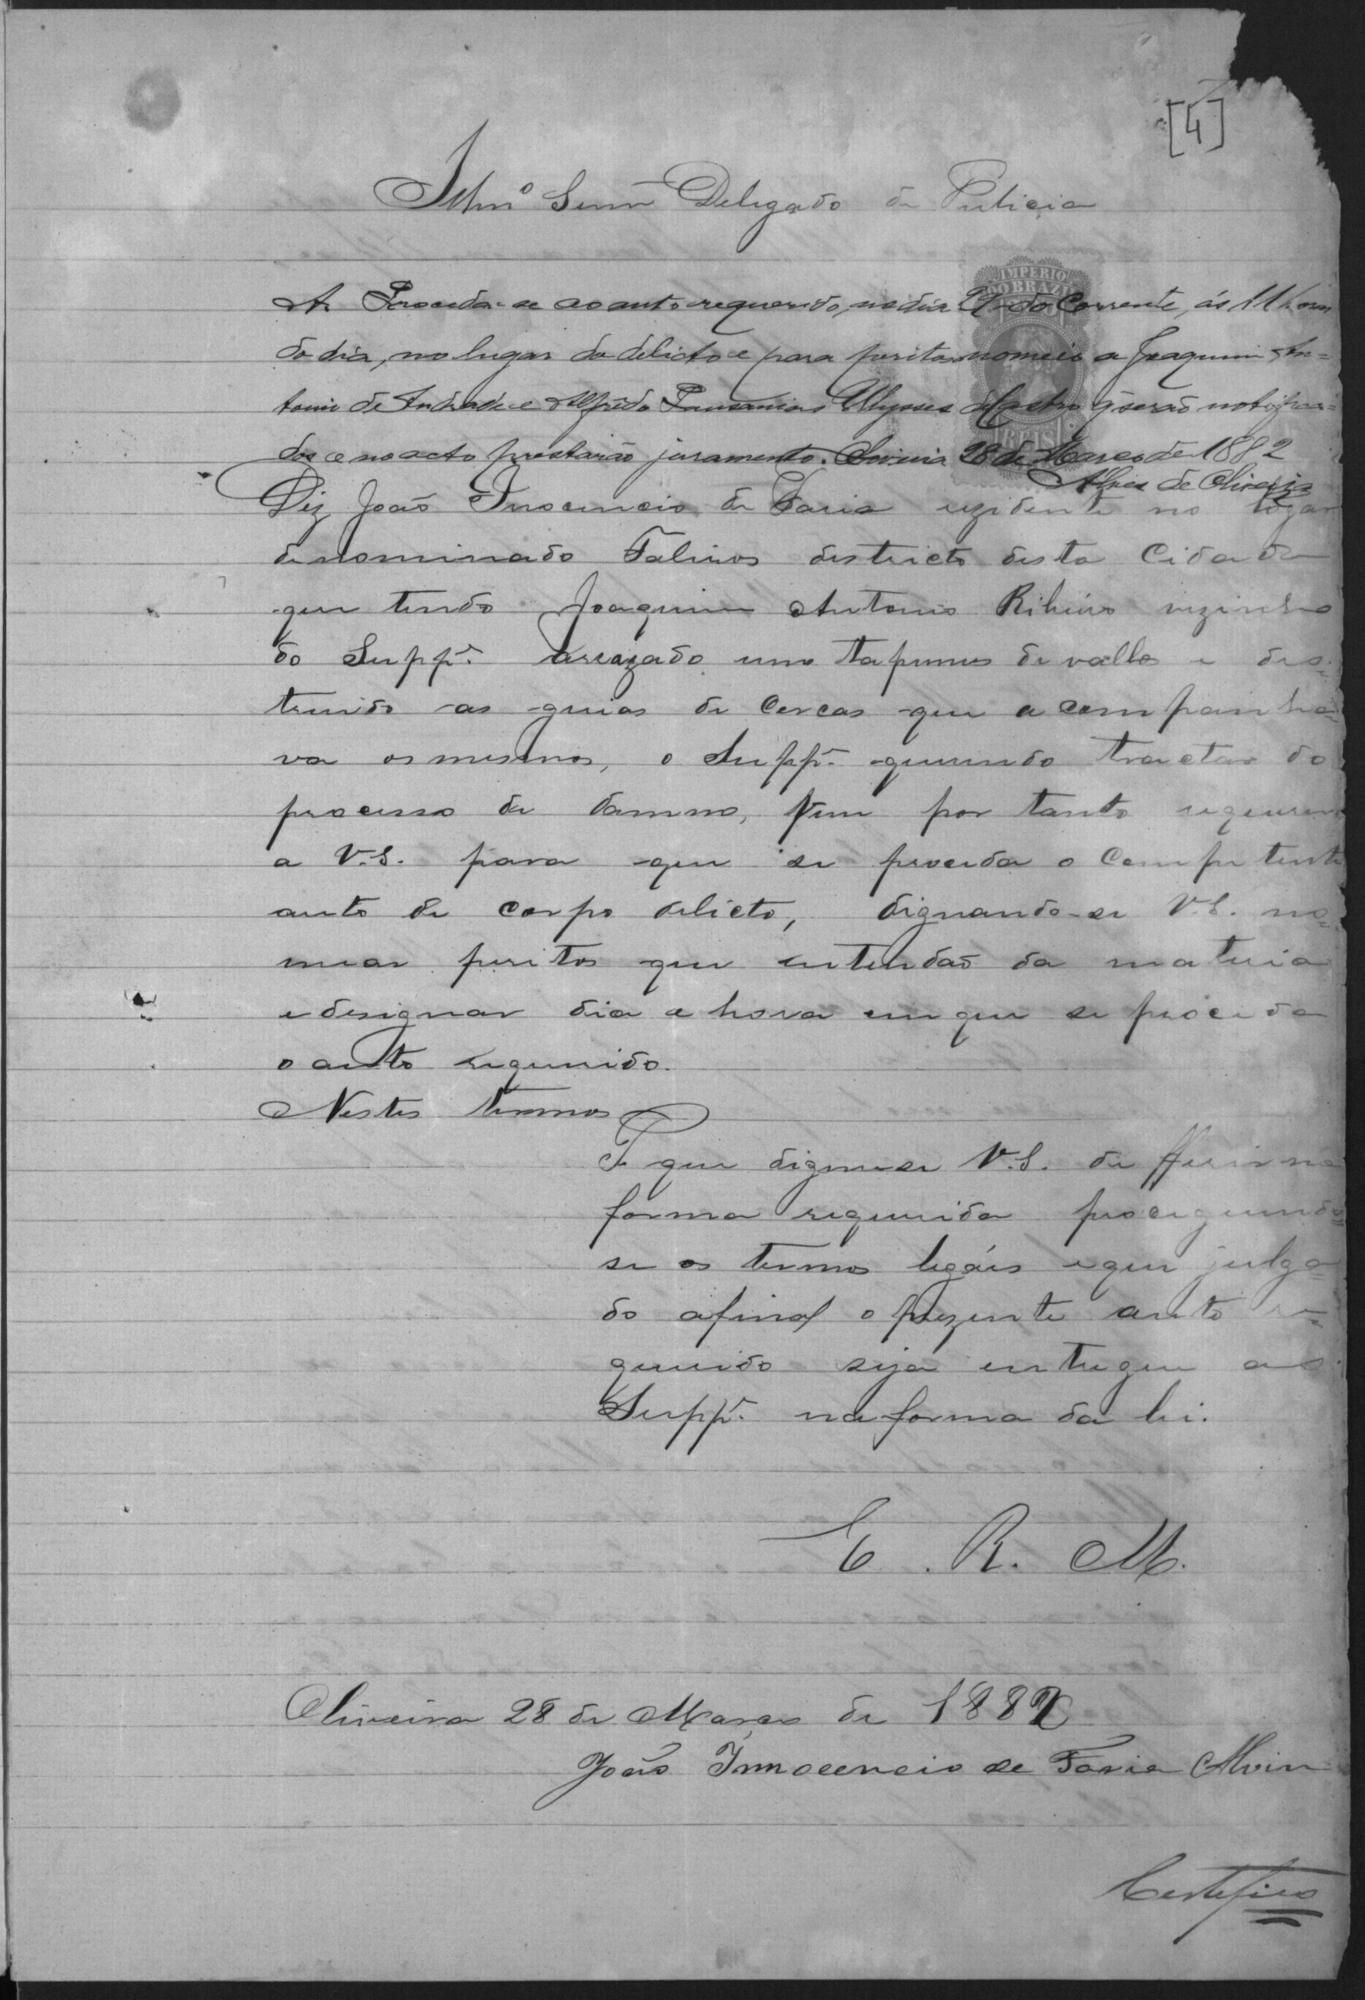 [4]
Illmº Senr Delegado de Policia
IMPERIO
DO BRAZIL
REIS
A. Proceda-se ao auto requerido, no dia do Corrente, ás 11 horas
do dia, no lugar do delicto e para peritos nomeio a Joaquim An=
tonio de Andrade e Alfredo Pausanias Ulysses de Castro q serão notifica=
dos e no acto prestarão juramento. Oliveira 28 de Março de 1882
Alves de Oliveira
Diz João Innocencio de Faria rezidente no logar
denominado Falivos districto desta Cidade
que tendo Joaquim Antonio Ribeiro vizinho
do Suppe. arrazado uns tapumes de vallos e des=
truido as guias de Cercas que acompanha=
va os mesmos, o Suppe. querendo tractar do
processo de damno, vem por tanto requerer
a V.S. para que se proceda o Competente
auto de corpo delicto, dignando-se V.S. no=
miar peritos que entendão da materia
e designar dia e hora em que se proceda
o auto requerido.
Nestes termos
P. que digne-se V.S. de fferir na
forma requerida proceguindo=
se os termos legáis e que julga=
do afinal o prezente auto re=
querido seja entregue ao
Suppe. na forma da lei.
E. R. M.
Oliveira 28 de Março de 1882
João Innocencio de Faria Alvim
Certefico